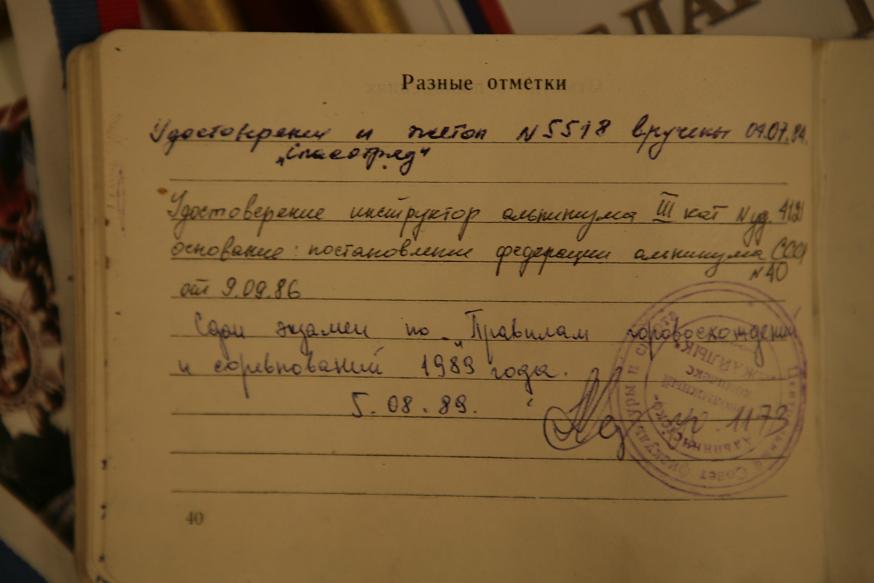 Разные отметки
Удостоверение и жетон №5518 вручены 04.07.84.
„Спасотряд"
Удостоверение инструктор альпинизма III кат № уд. 412
основание: постановление федерации альпинизма СССР
№40
от 9.09.86
Сдан экзамен по „Правилам горовосхождений
и соревнований 1989 года.
5.08.89.
№ 1173
Центральный Совет физкультуры и спорта
40